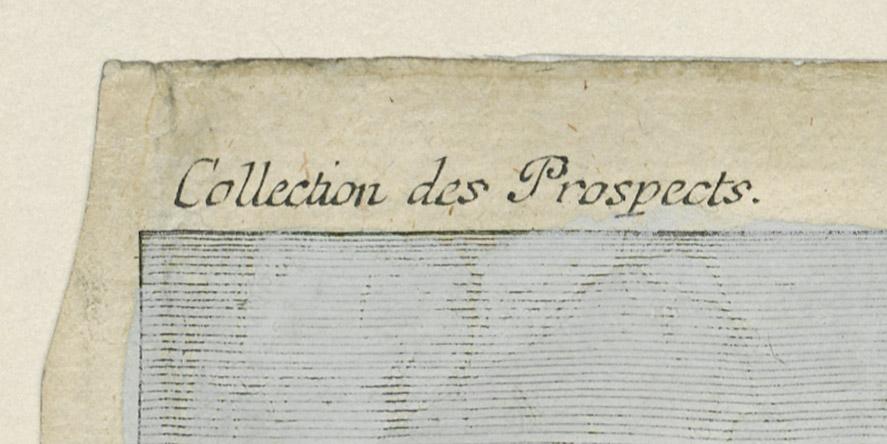 Collection des Prospects.